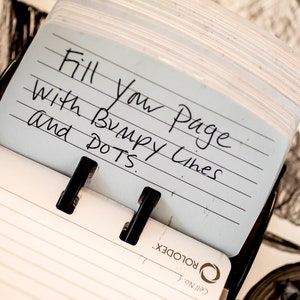 Fill Your Page
with Bumpy Lines
and DoTs.
ROLODEX
Cell No.